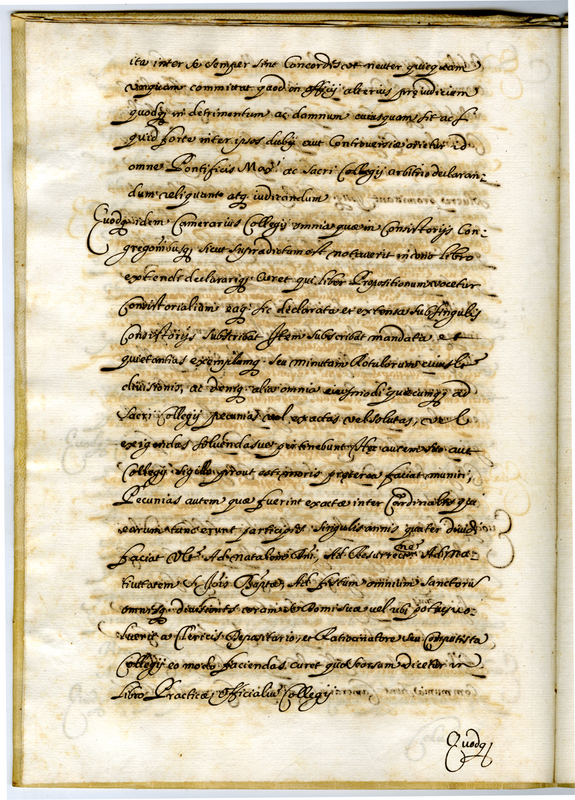 ita inter se semper sint Concordes, et neuter quicquam
unquam committat quod in officij alterius preiudicium
quodq; in detrimentum ac damnum cuiusquam sit ac si
quid forte inter ipsos dubij aut Controversiæ orietur id
omne Pontificis Maxi. ac Sacri Collegij arbitrio declaran-
dum relinquant atq; iudicandum
Quodq; idem Camerarius Collegij omnia quæ in Consistorijs Con-
gregationibusq; sicut supradictum est notaverit in uno libro
extendi declararisq; curet qui liber Propositionum vocetur
Consistorialium eaq; sic declarata et extensa sub singulis
Consistorijs subscribat Item subscribat mandata et
quietantias exemplumq; seu minutam Rotulorum cuiusli
divisionis, ac deniq; alia omnia eiusmodi quæcumq; ad
Sacri Collegij pecunias vel exactas vel solutas, vel
exigendas solvendasve pertinebunt, Atq; autem suo aut
Collegij sigillo prout est moris præterea faciat muniri,
Pecunias autem quæ fuerint exactæ inter Cardinales qui
earum tunc erunt participes singulis annis quater dividi
faciat Vlt. Ad natalem Dni, Ad Resurrectionem Ad Na-
tivitatem S. Jois Baptæ, Ad festum omnium Sanctorum
omnesq; divisiones coram se Domi suæ vel ubi potius vo-
luerit a Clericis Depositario, et Ratiocinatore seu Computista
Collegij eo modo faciendas curet quo seorsum dicetur in
libro Practicæ, Officialium Collegij
Quodq;